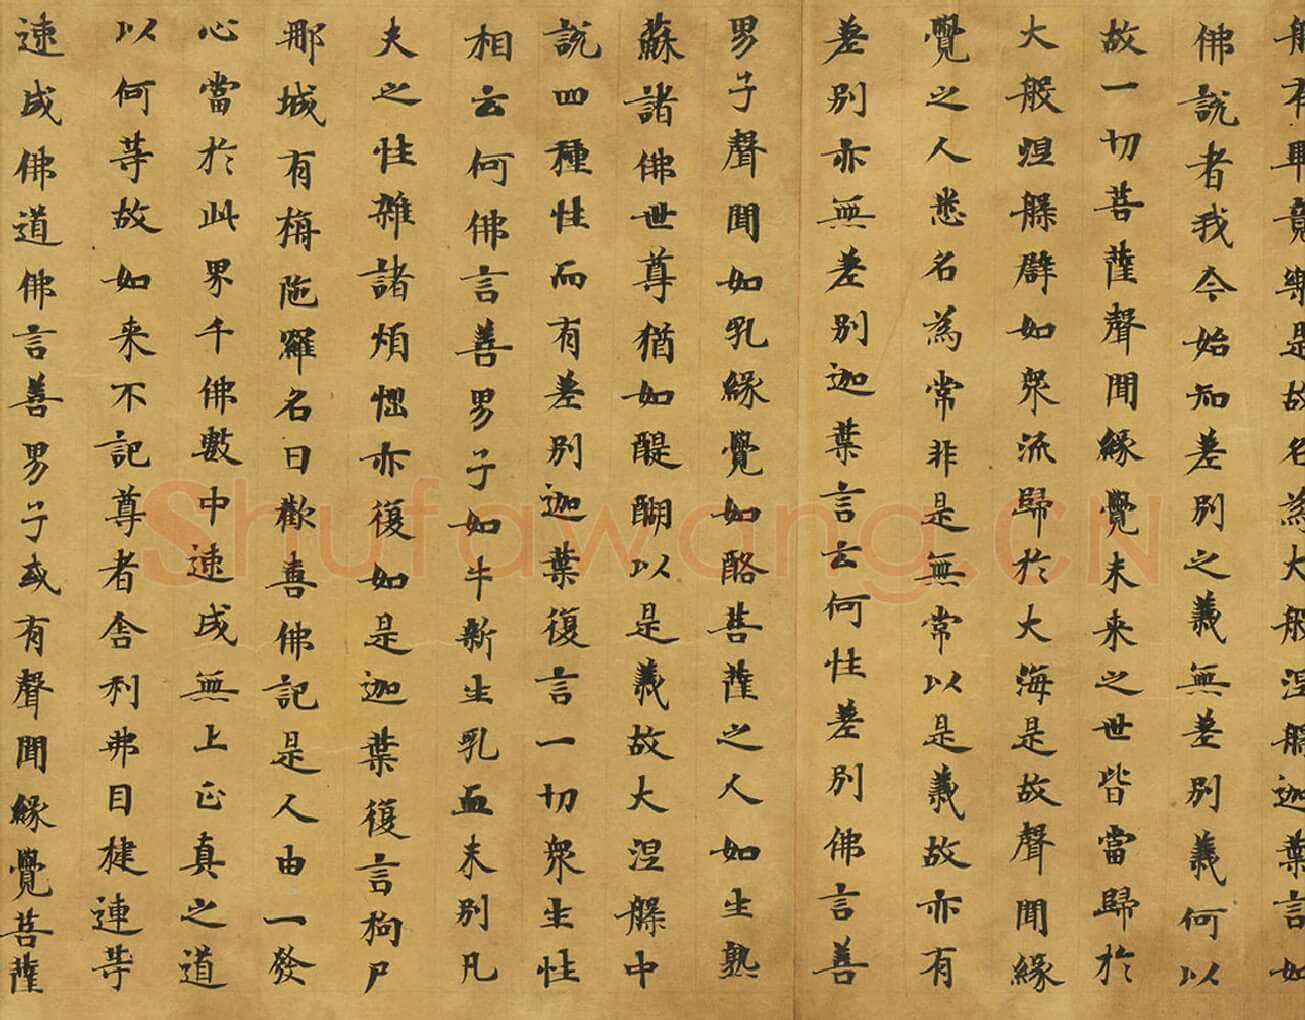 般有畢竟樂是故名為大般涅槃迦葉言如
佛說者我今始知差別之義無差別義何以
故一切菩薩聲聞緣覺未來之世皆當歸於
大般涅槃譬如眾流歸於大海是故聲聞緣
覺之人悉名為常非是無常以是義故亦有
差別亦無差別迦葉言云何性差別佛言善
男子聲聞如乳緣覺如酪菩薩之人如生熟
蘇諸佛世尊猶如醍醐以是義故大涅槃中
說四種性而有差別迦葉復言一切眾生性
相云何佛言善男子如牛新生乳血未別凡
夫之性雜諸煩惱亦復如是迦葉復言拘尸
那城有栴陀羅名曰歡喜佛記是人由一發
心當於此界千佛數中速成無上正真之道
以何等故如来不記尊者舍利弗目揵連等
速成佛道佛言善男子或有聲聞緣覺菩薩
Shufawang.CN